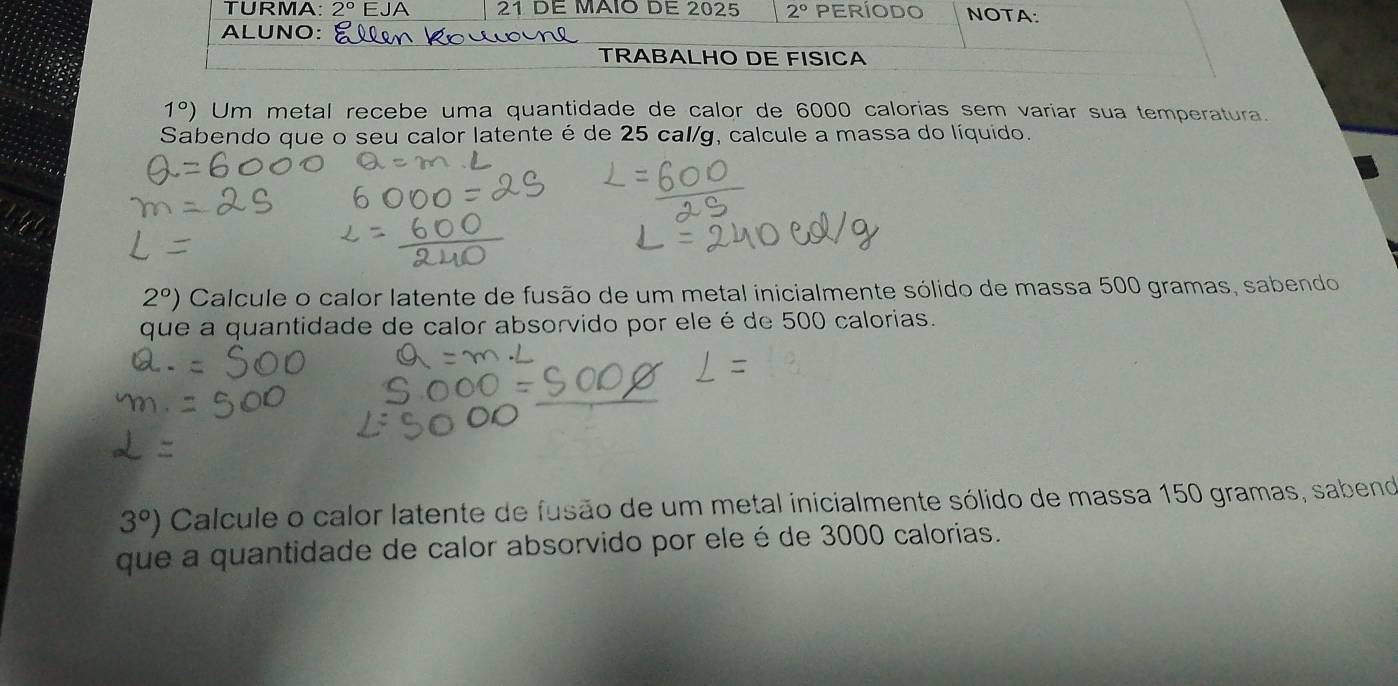 TURMA: 2º EJA 21 DE MAIO DE 2025 2º PERÍODO NOTA:
ALUNO: Ellen
TRABALHO DE FISICA
1º) Um metal recebe uma quantidade de calor de 6000 calorias sem variar sua temperatura.
Sabendo que o seu calor latente é de 25 cal/g, calcule a massa do líquido.
Q=6000 Q=m.L L=600/25
m=25 6000=25
L= L=600/240 L=240 cal/g
2º) Calcule o calor latente de fusão de um metal inicialmente sólido de massa 500 gramas, sabendo
que a quantidade de calor absorvido por ele é de 500 calorias.
Q.=500 Q=m.L
m.=500 5.000=5000 L=
L= L=5000
3º) Calcule o calor latente de fusão de um metal inicialmente sólido de massa 150 gramas, sabend
que a quantidade de calor absorvido por ele é de 3000 calorias.